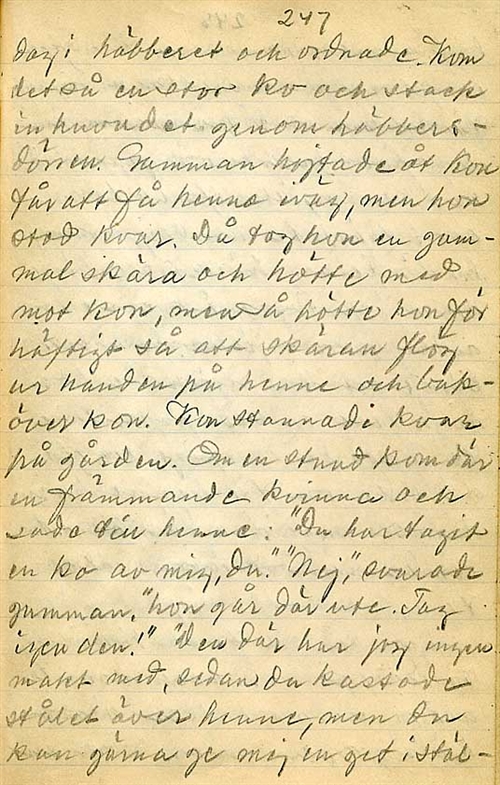 247
dag i häbberet och ordnade. Kom
det så en stor ko och stack
in huvudet genom häbbers-
dörren. Gumman hojtade åt kon
får att få henne iväg, men hon
stod kvar. Då tog hon en gam-
mal skära och hötte med
mot kon, men så hötte hon för
häftigt så att skäran flög
ur handen på henne och bak-
över kon. Kon stannade kvar
på gården. Om en stund kom där
en främmande kvinna och
sade till henne: "Du har tagit
en ko av mig, du." "Nej," svarade
gumman, "hon går där ute. Tag
igen den!" "Den där har jag ingen
makt med, sedan du kastade
stålet över henne, men du
kan gärna ge mig en get i stäl-